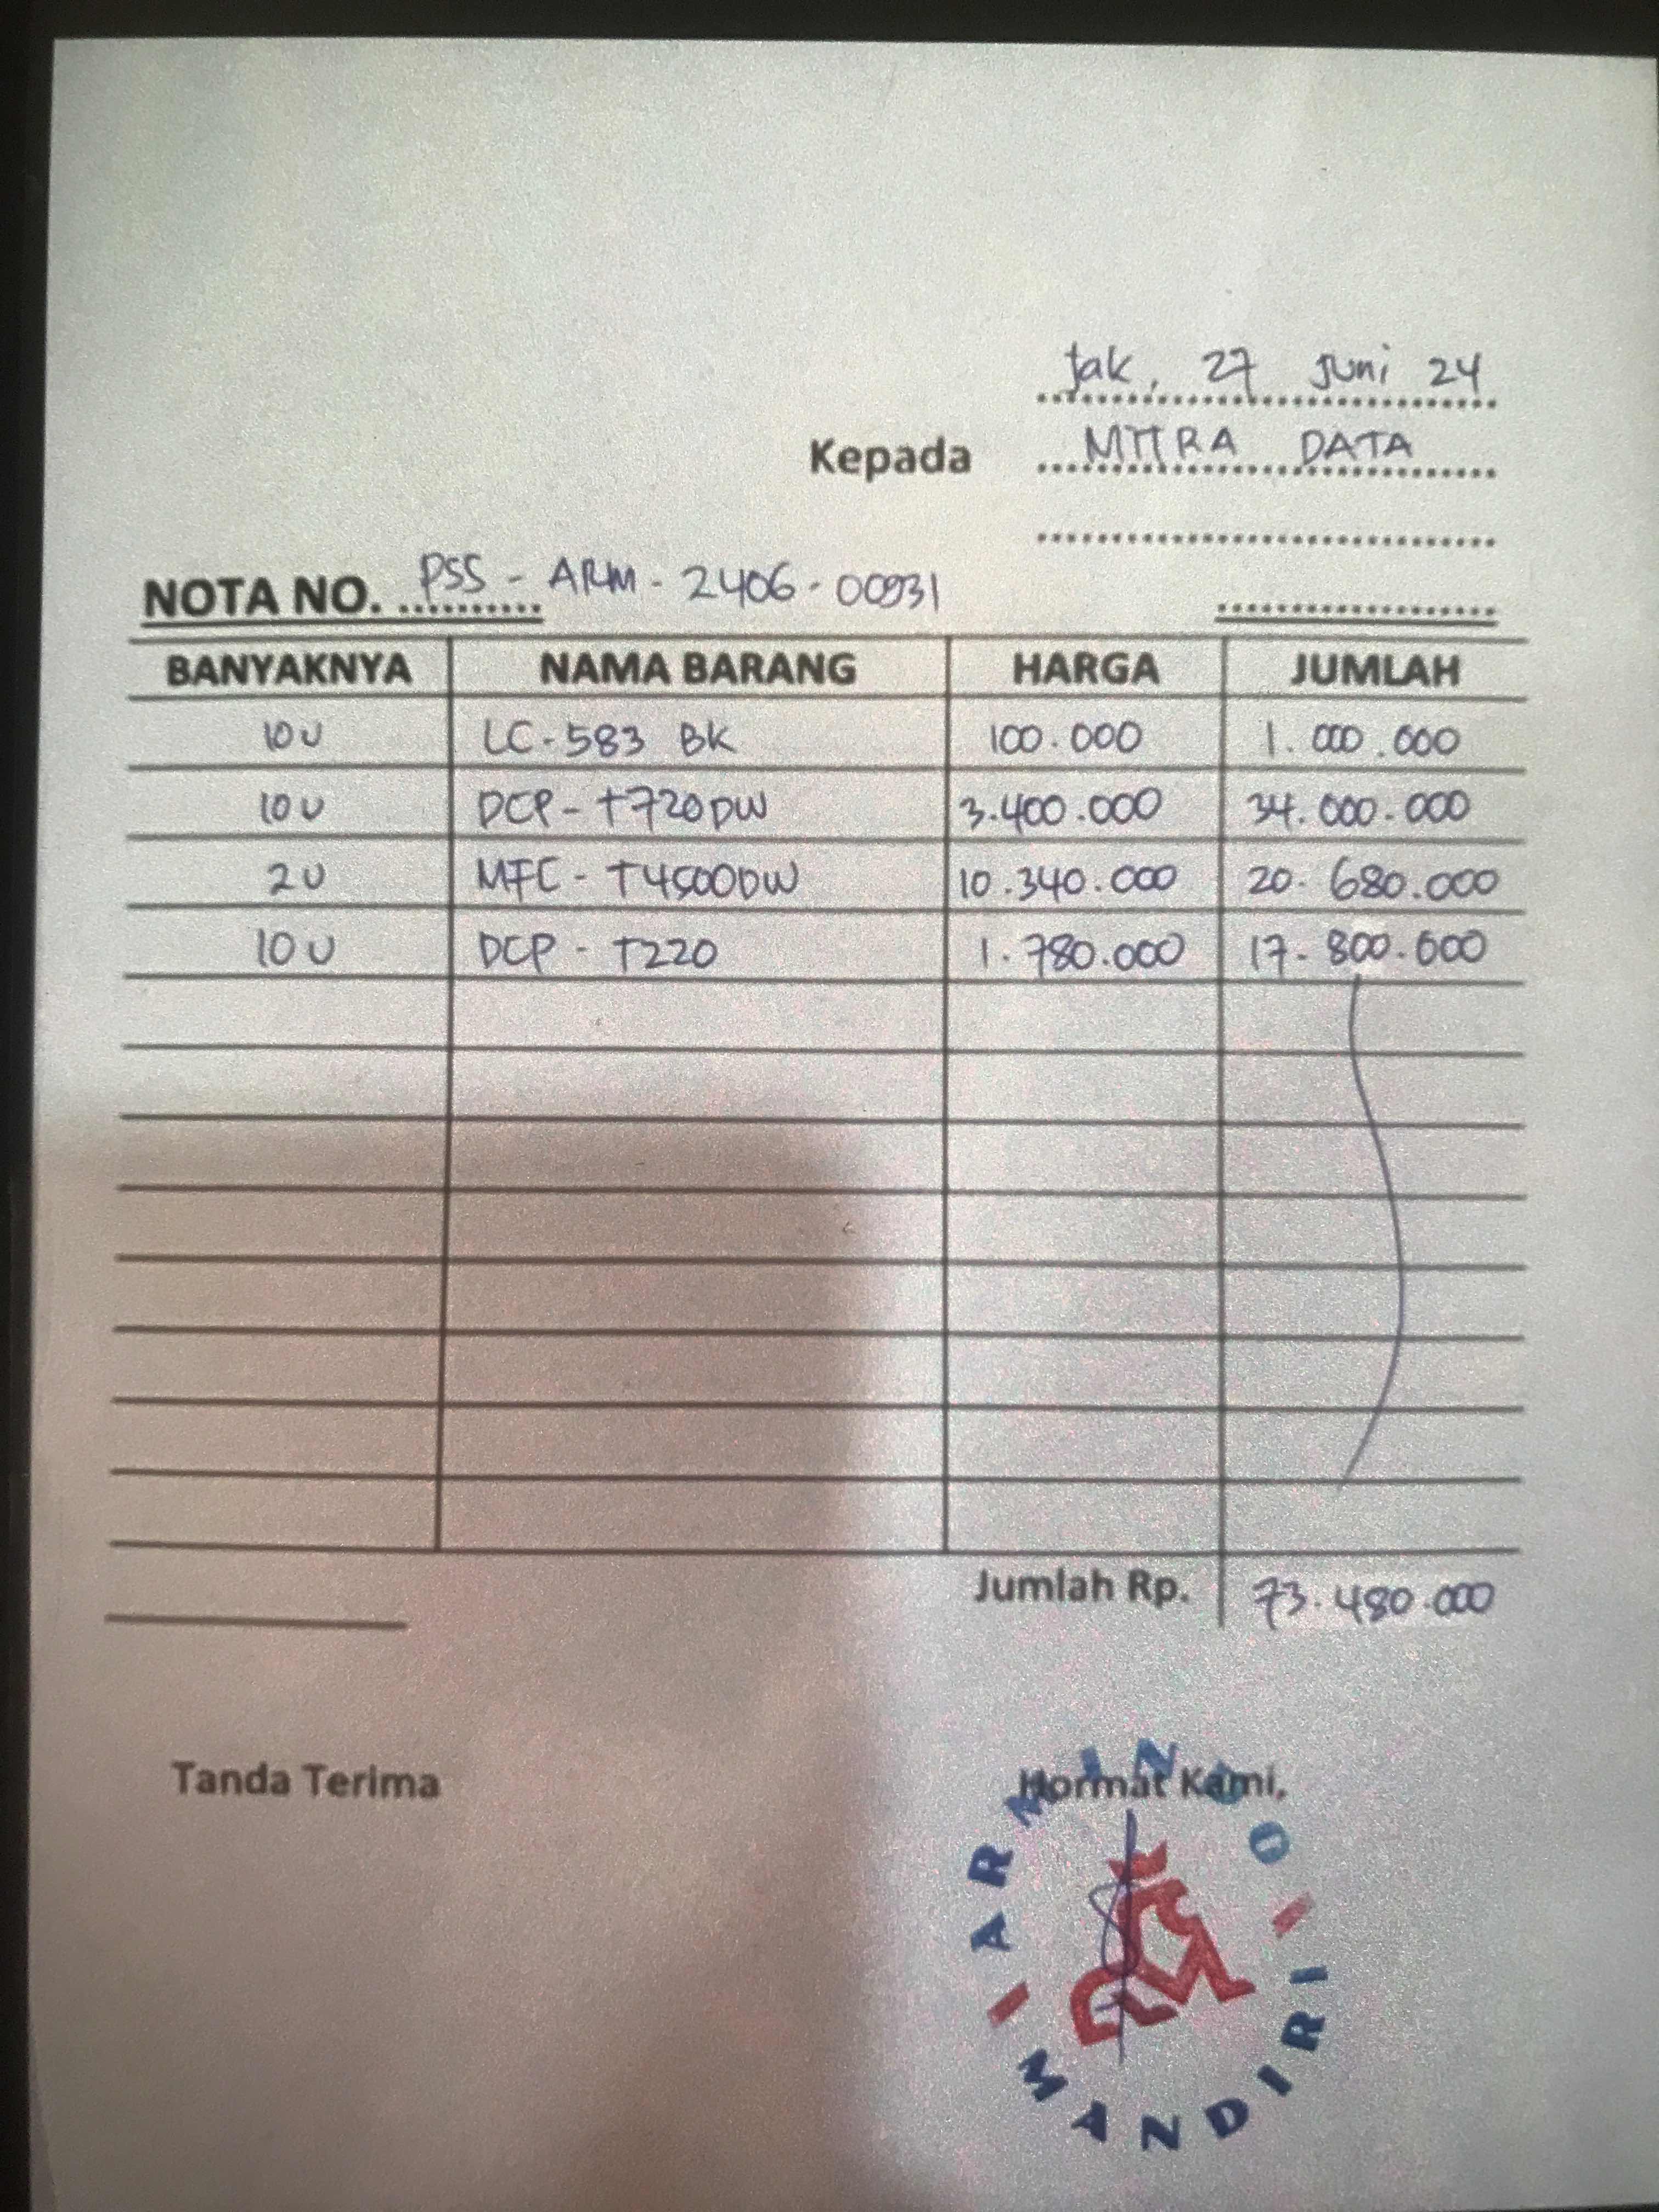 Jak, 27 Juni 24
Kepada MITRA DATA
NOTA NO. PSS - ARM - 2406 - 00931
BANYAKNYA NAMA BARANG HARGA JUMLAH
10 U LC-583 BK 100.000 1.000.000
10 U DCP-T720DW 3.400.000 34.000.000
2 U MFC-T4500DW 10.340.000 20.680.000
10 U DCP-T220 1.780.000 17.800.000
Jumlah Rp. 73.480.000
Tanda Terima Hormat Kami,
ARMINDO
MANDIRI